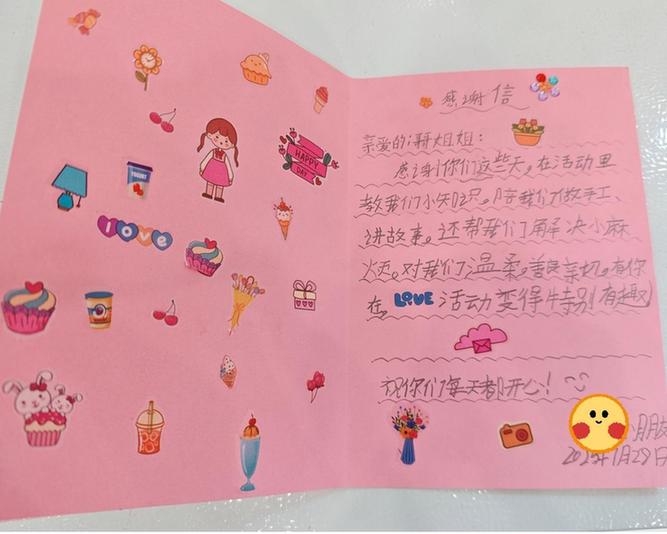 HAPPY
DAY
YOGURT
love
感谢信
亲爱的哥姐姐：
感谢你们这些天，在活动里
教我们小知识。陪我们做手工、
讲故事。还帮我们解决小麻
烦。对我们温柔。善良亲切。有你
在，LOVE 活动变得特别有趣
祝你们每天都开心！
朋友
月28日